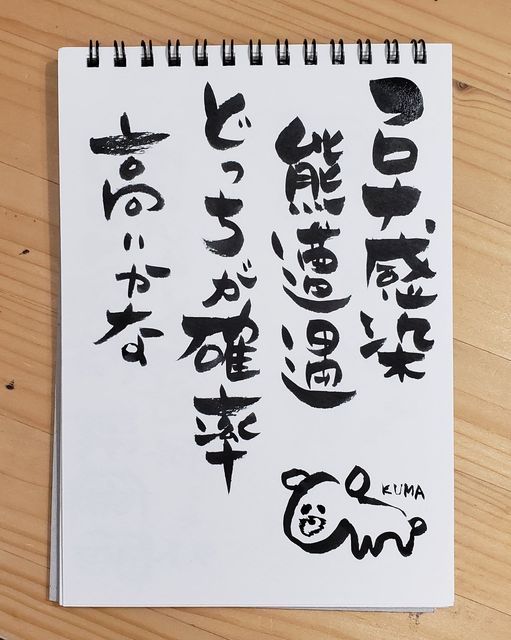 コロナ感染
熊遭遇
どっちが確率
高いかな
KUMA